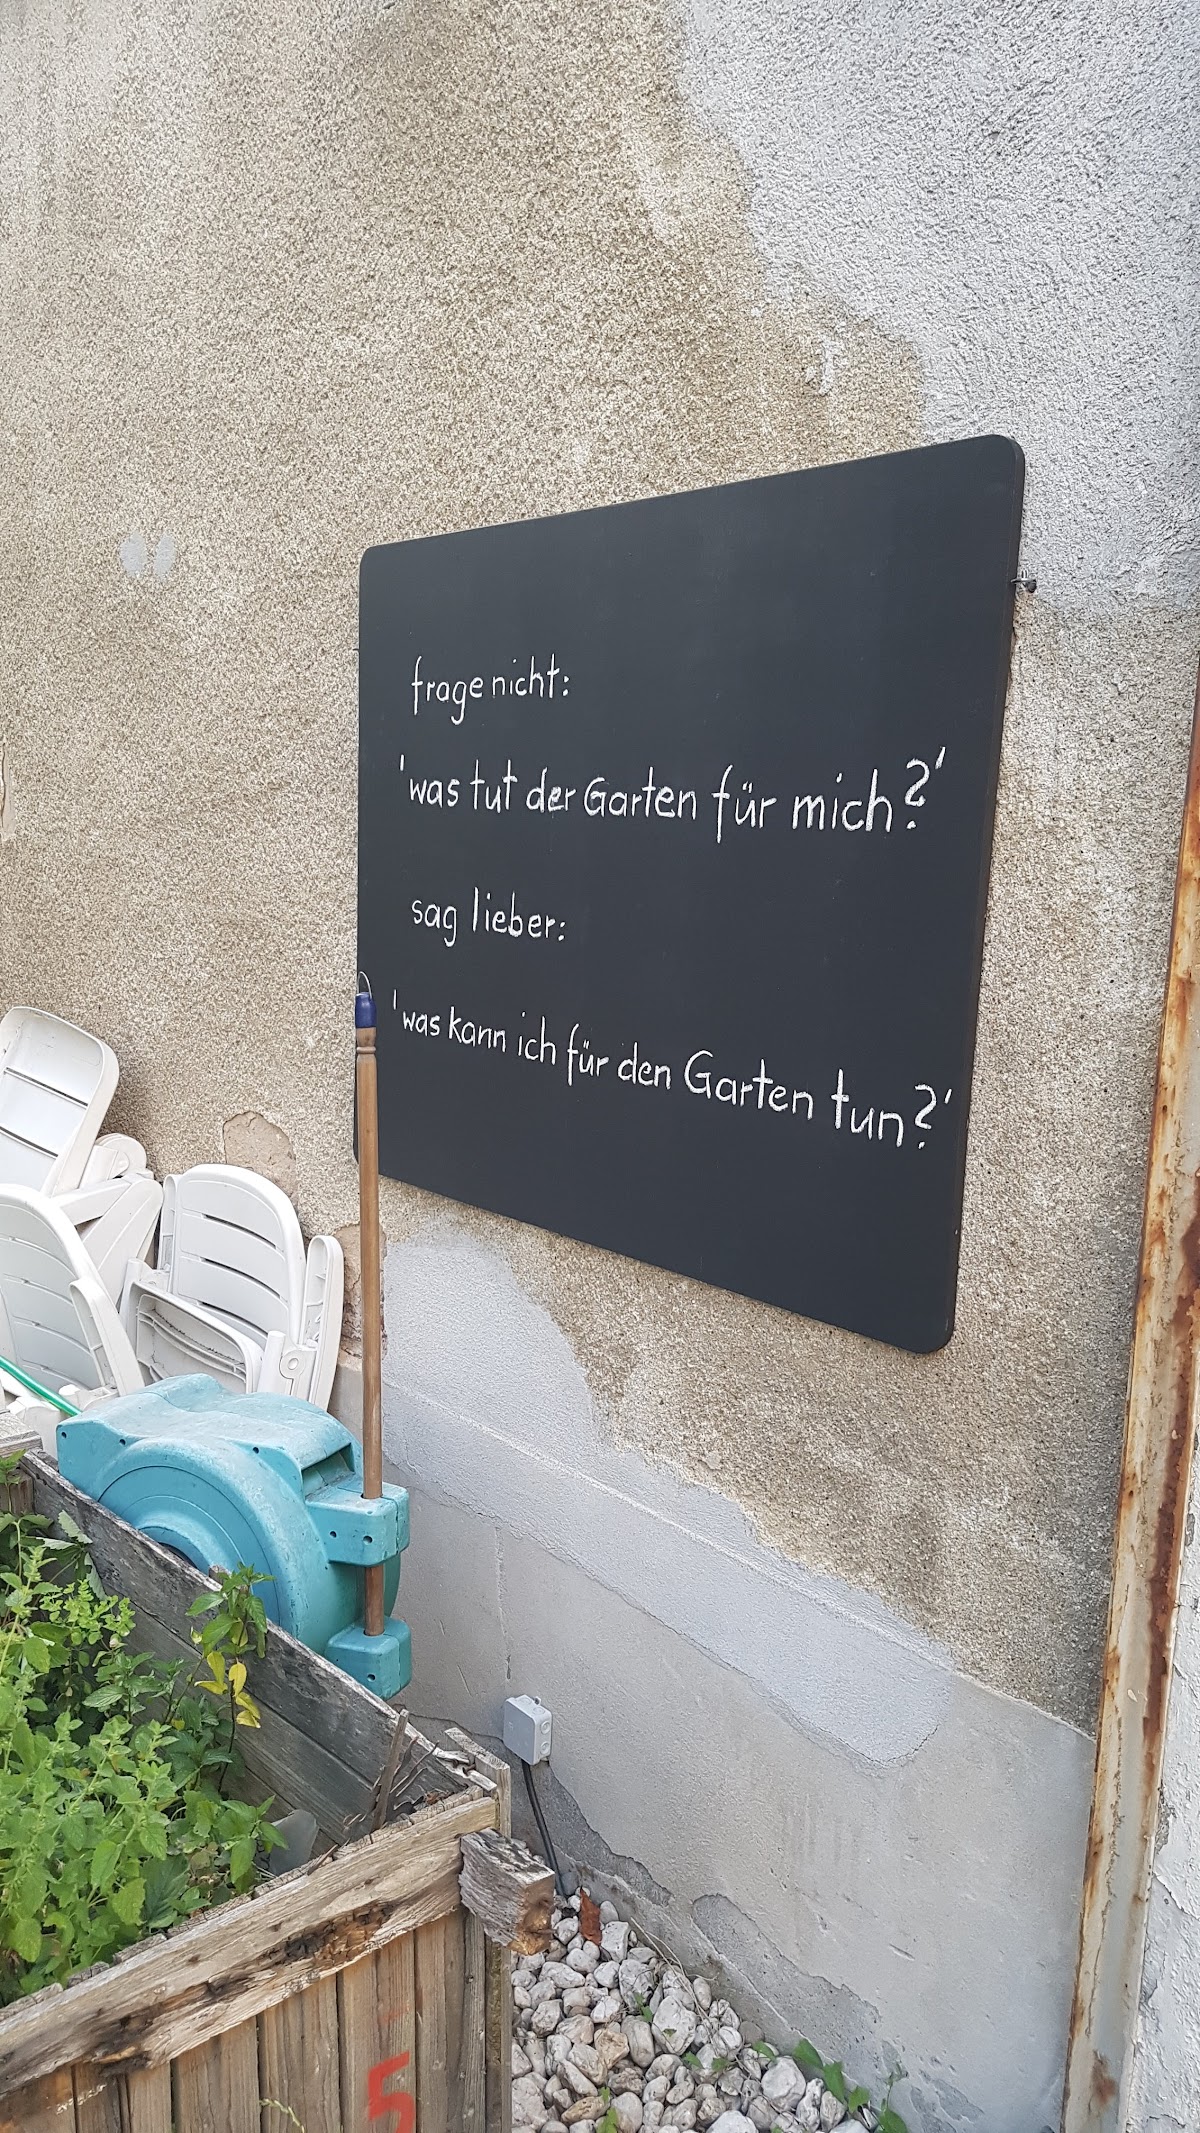 frage nicht:
'was tut der Garten für mich?'
sag lieber:
'was kann ich für den Garten tun?'
5